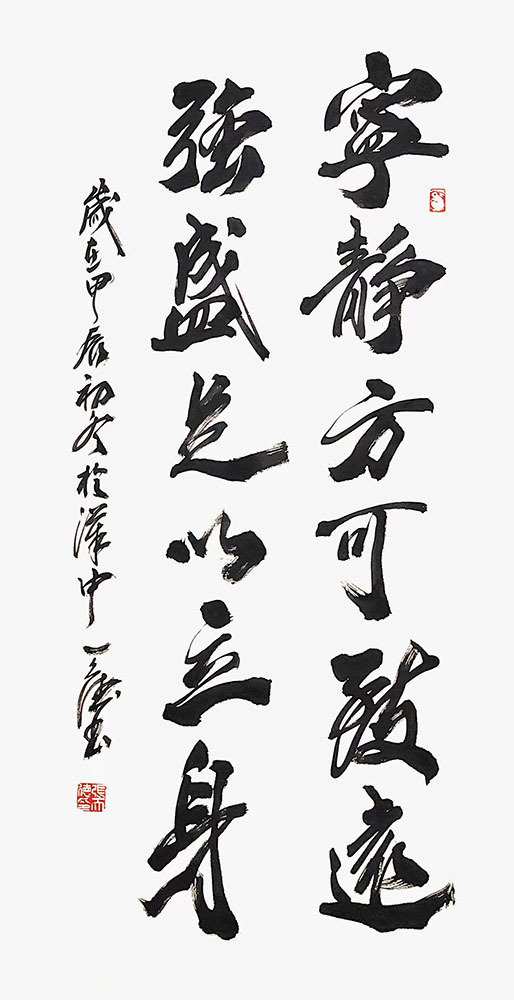 寧靜方可致遠
強盛足以立身
歲在甲辰初冬於漢中一